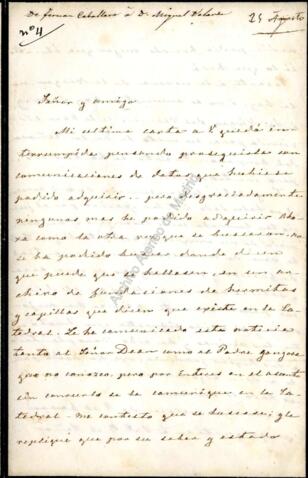 De Fernan Caballero á Dn Miguel Velarde
25 Agosto
nº 4
Señor y amigo
Mi ultima carta a V. quedó in-
terrumpida pensando proseguirla con
comunicaciones de datos que hubie se
podido adquirir. pero desgraciadamente
ningunas mas he podido adquirir
como la otra vez que se buscaron, no
se ha podido
puede que se hallasen, en un ar-
chivo de fundaciones de hermitas
y capillas que dicen que existe en la Ca-
tedral. Lo he comunicado esta noticia
tanto al Señor Dean como al Padre
que no conozco, pero por
en la Ca-
tedral. Me contestó que se buscase; y le
repliqué que por su saber y estado
Archivo Ateneo de Madrid